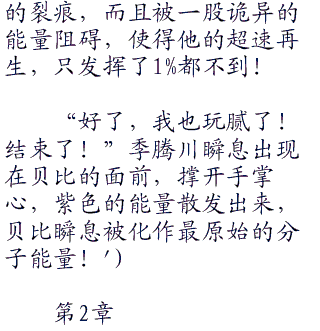 的裂痕，而且被一股诡异的
能量阻碍，使得他的超速再
生，只发挥了1%都不到！
“好了，我也玩腻了！
结束了！”季腾川瞬息出现
在贝比的面前，撑开手掌
心，紫色的能量散发出来，
贝比瞬息被化作最原始的分
子能量！')
第2章